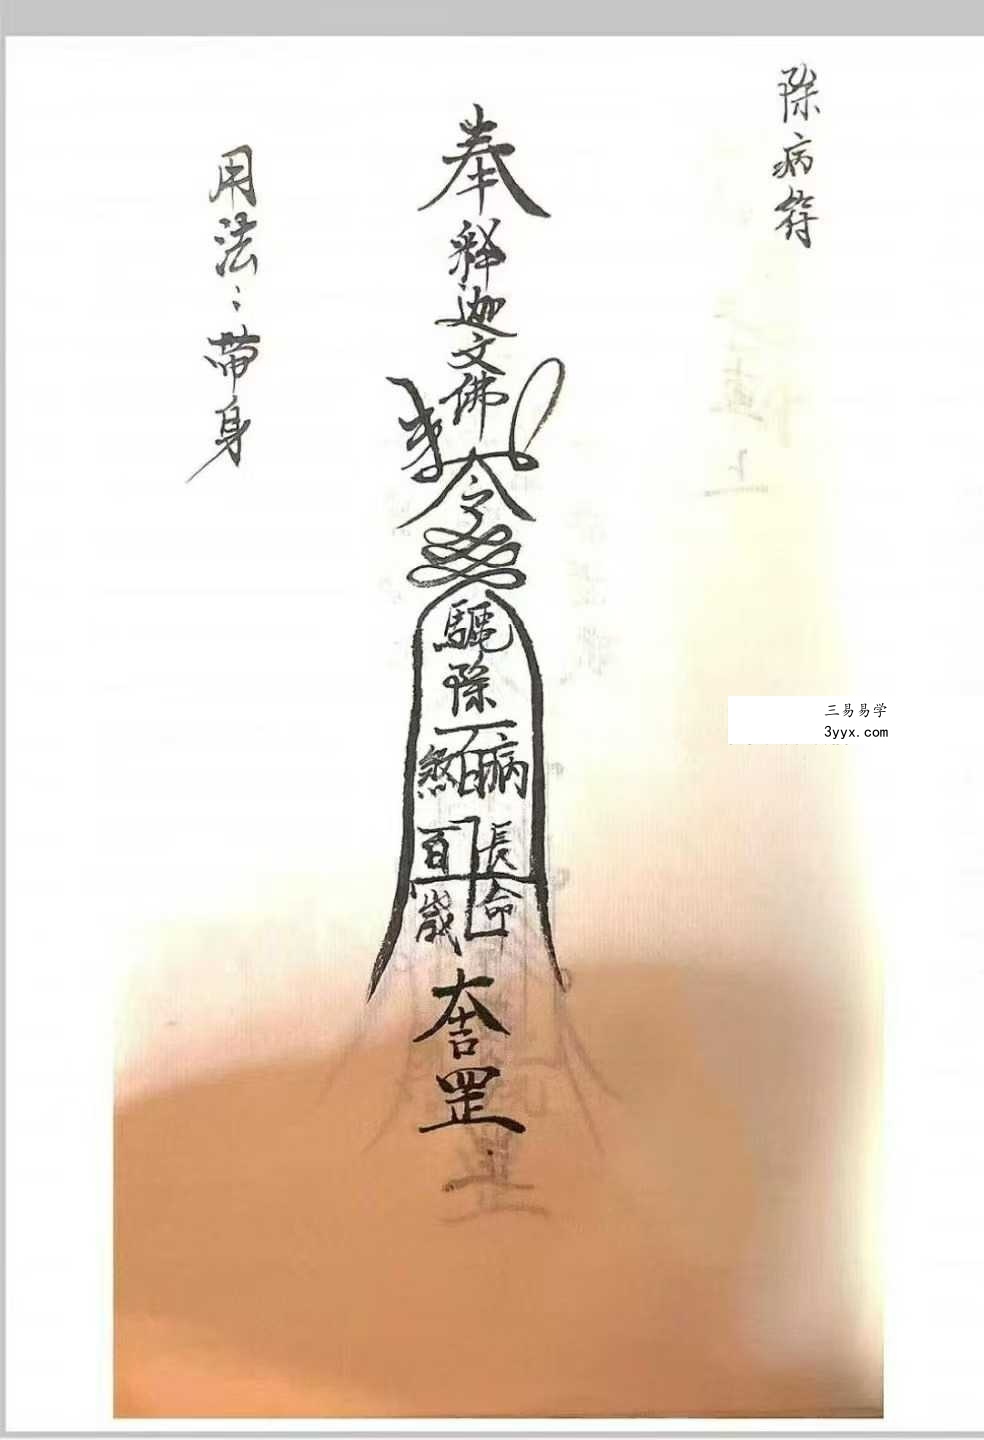 除病符
奉
釋迦文佛
令
驅除
百
煞病
長命
百歲
罡
用法：帶身
三易易学
3yyx.com